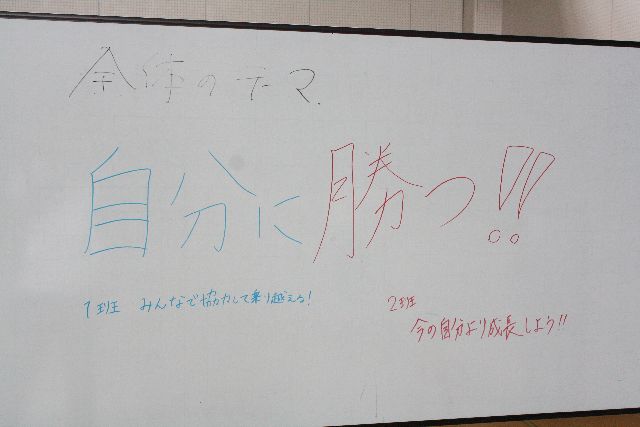 全体のテーマ.
自分に勝つ!!
1班 みんなで協力して乗り越える!
2班
今の自分より成長しよう!!